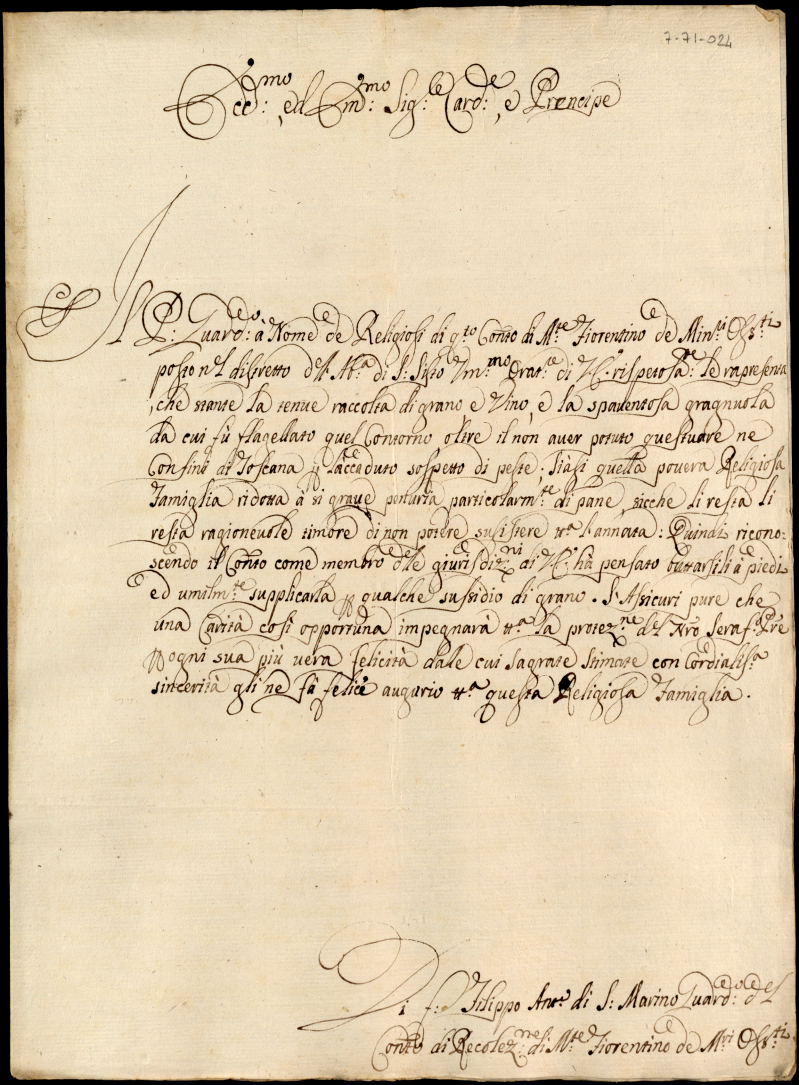 7-71-024
Ecc:mo, ed Em:mo Sig:le Card:e, e Prencipe
Il P: Guard:o à Nome de Religiosi di q:to Conto di M:te Fiorentino de Min:ri Oss:ti
posto nel distretto del Ab:a di S: Sisto Um:mo Orat:e di V.E. rispetosa:te le rapresenta
, che stante la tenue raccolta di grano e Vino, e la spaventosa gragnuola
da cui fù flagellato quel Contorno oltre il non aver potuto questuare ne
Confini di Toscana p l'accaduto sospetto di peste, siasi quella povera Religiosa
Famiglia ridotta à si grave penuria particolarm:te di pane, sicche li resta li
resta ragionevole timore di non potere susistere tt:a l'annata: Quindi ricono:
scendo il Conto come membro dele giurisdiz:ni di V.E. hà pensato buttarsili à piedi
ed umilm:te supplicarla p qualche sussidio di grano. S'Assicuri pure che
una Carità cosi opportuna impegnarà tt:a la protez:ne del Nro Seraf:o Pre
p ogni sua più vera felicità dale cui sagrate stimate con Cordialis:a
sincerità gli ne fà felice augurio tt:a questa Religiosa Famiglia.
Di f: Filippo Ant:o di S: Marino Guard:o del
Conto di Recolez:ne di M:te Fiorentino de M:ri Oss:ti